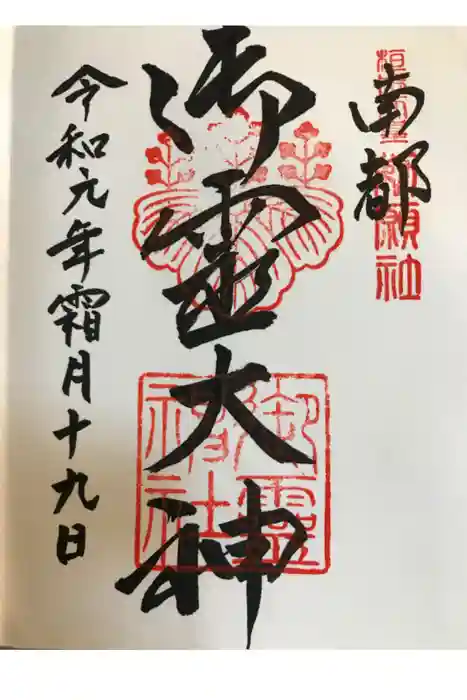 南都
願社
御霊大神
御靈
神社
令和元年霜月十九日